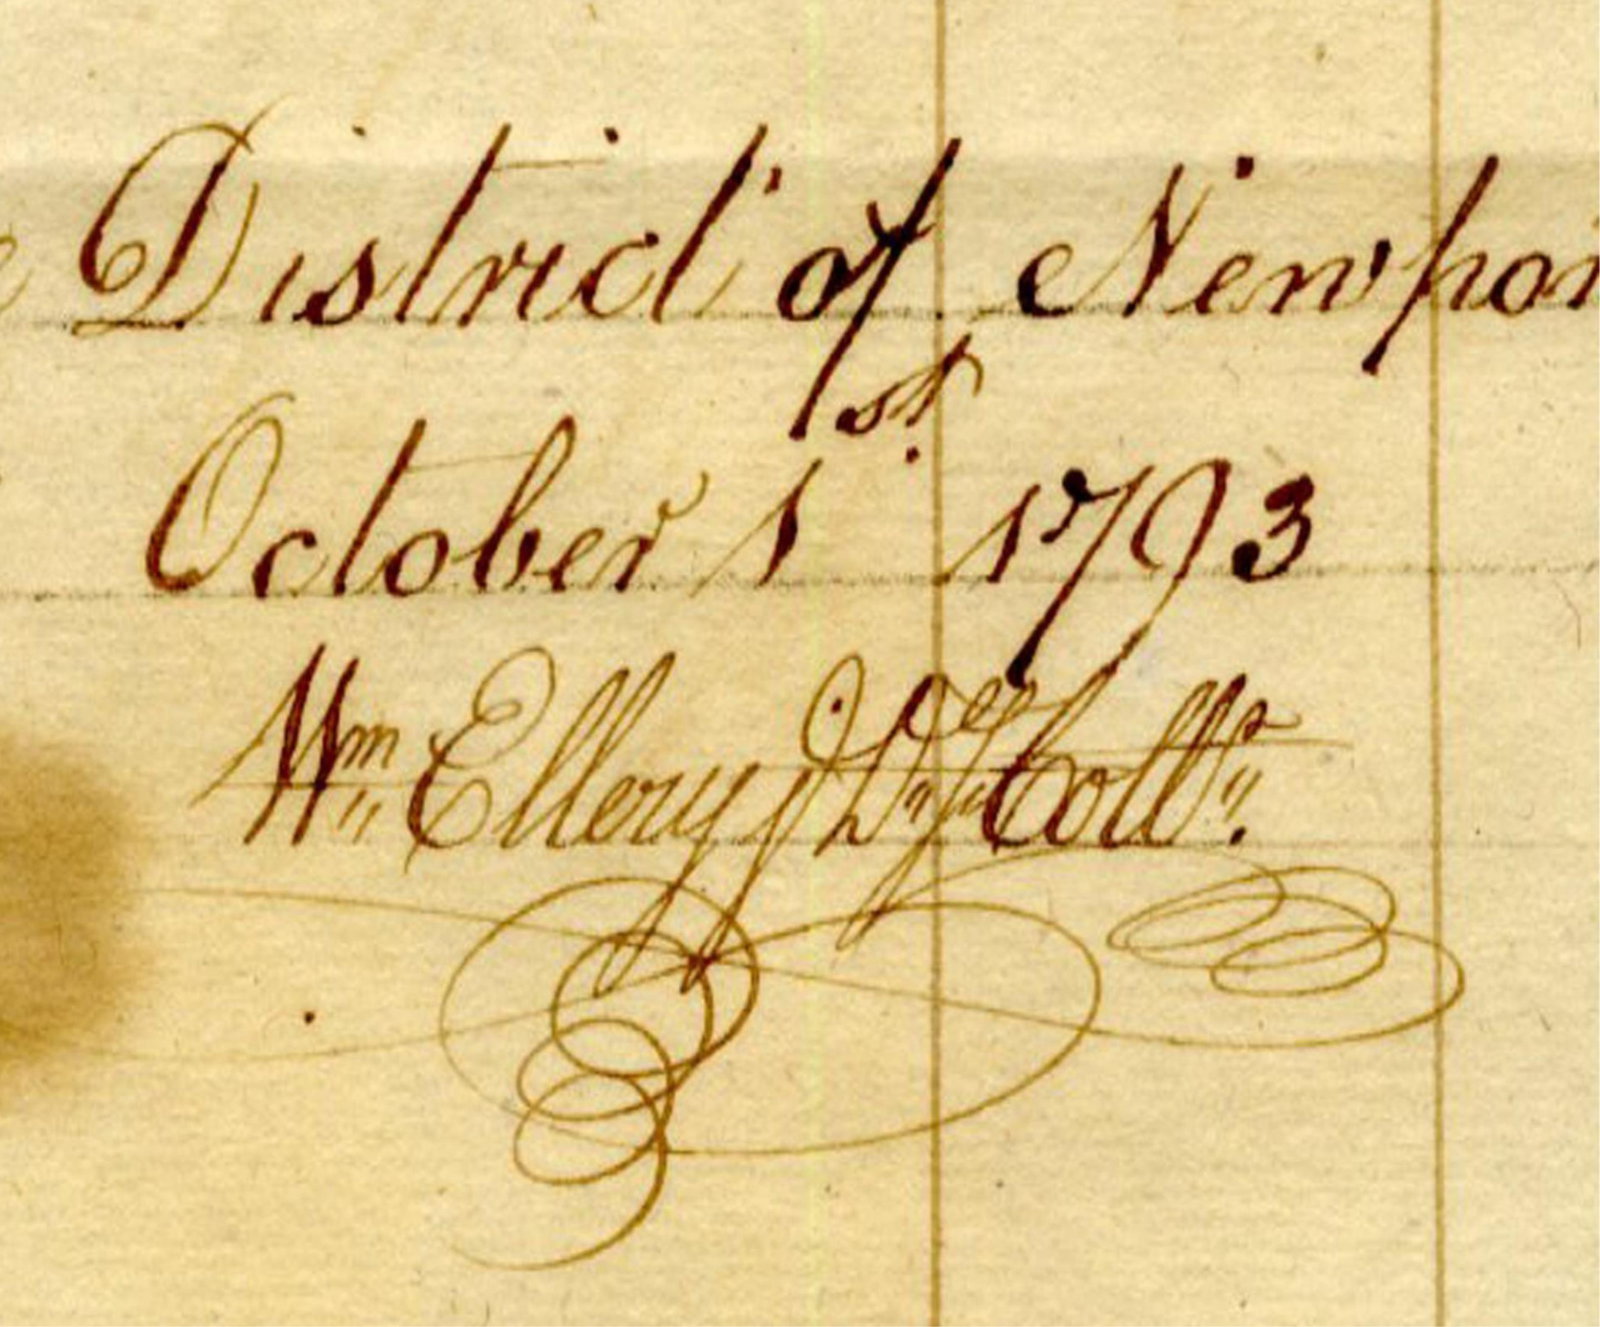 District of Newpor
October 1st. 1793
Wm Ellery J Dy Collr.